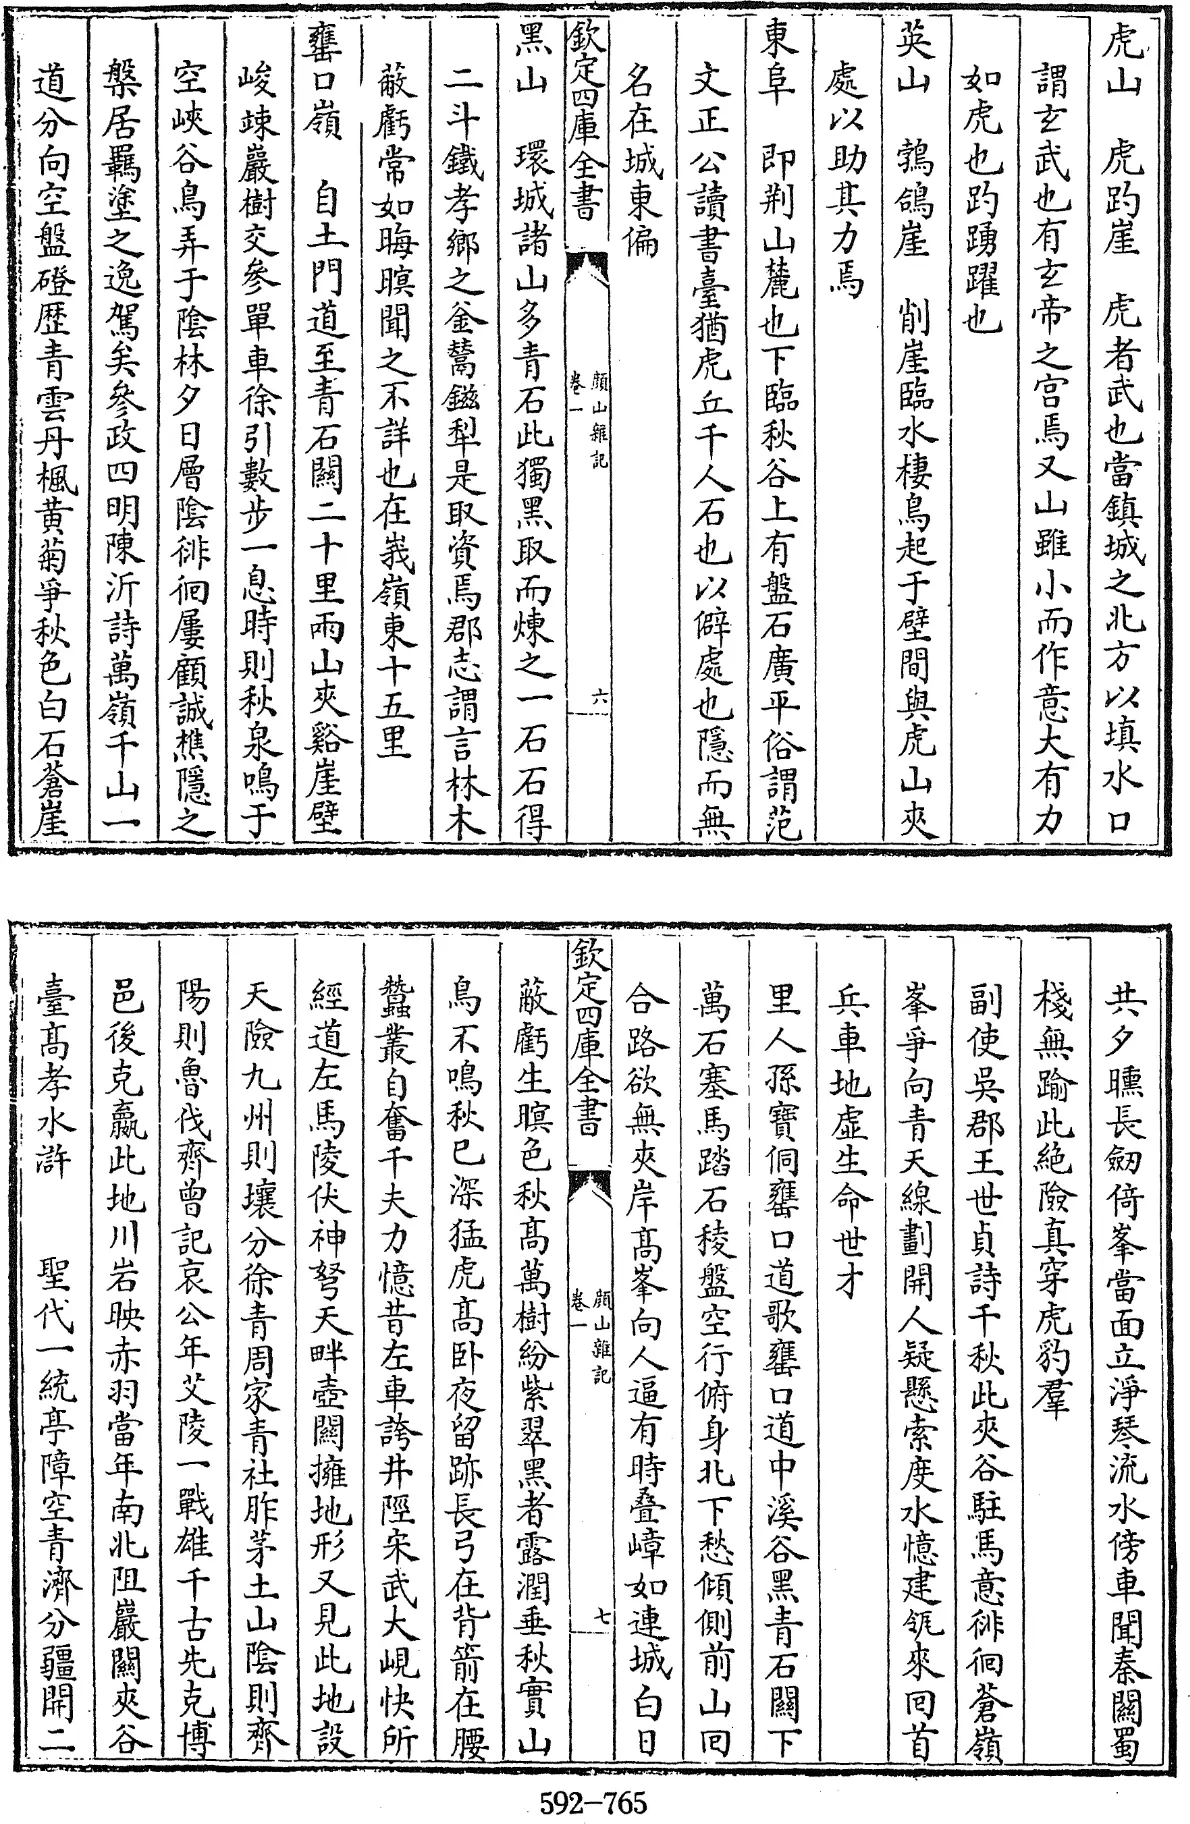 虎山　虎趵崖　虎者武也當鎮城之北方以填水口
謂玄武也有玄帝之宫焉又山雖小而作意大有力
如虎也趵踴躍也
英山　鵓鴿崖　削崖臨水棲鳥起于壁間與虎山夾
處以助其力焉
東阜　即荆山麓也下臨秋谷上有盤石廣平俗謂范
文正公讀書臺猶虎丘千人石也以僻處也隱而無
名在城東偏
欽定四庫全書　顔山雜記　卷一　六
黑山　環城諸山多青石此獨黑取而煉之一石石得
二斗鐵孝鄉之釜鬵鎡犁是取資焉郡志謂言林木
蔽虧常如晦暝聞之不詳也在峩嶺東十五里
罋口嶺　自土門道至青石關二十里兩山夾谿崖壁
峻竦巖樹交參單車徐引數步一息時則秋泉鳴于
空峽谷鳥弄于陰林夕日層陰徘徊屢顧誠樵隱之
槃居羈塗之逸駕矣參政四明陳沂詩萬嶺千山一
道分向空盤磴歴青雲丹楓黄菊爭秋色白石蒼崖
共夕曛長劒倚峯當面立淨琴流水傍車聞秦關蜀
棧無踰此絶險真穿虎豹羣
副使吳郡王世貞詩千秋此夾谷駐馬意徘徊蒼嶺
峯爭向青天線劃開人疑懸索度水憶建瓴來回首
兵車地虛生命世才
里人孫寶侗罋口道歌罋口道中溪谷黑青石關下
萬石塞馬踏石稜盤空行俯身北下愁傾側前山回
合路欲無夾岸高峯向人逼有時叠嶂如連城白日
欽定四庫全書　顔山雜記　卷一　七
蔽虧生暝色秋高萬樹紛紫翠黑者露潤垂秋實山
鳥不鳴秋已深猛虎高卧夜留跡長弓在背箭在腰
蠶叢自奮千夫力憶昔左車誇井陘宋武大峴快所
經道左馬陵伏神弩天畔壺關擁地形又見此地設
天險九州則壤分徐青周家青社胙茅土山陰則齊
陽則魯伐齊曾記哀公年艾陵一戰雄千古先克博
邑後克嬴此地川岩映赤羽當年南北阻巖關夾谷
臺高孝水滸　聖代一統亭障空青濟分疆開二
592－765